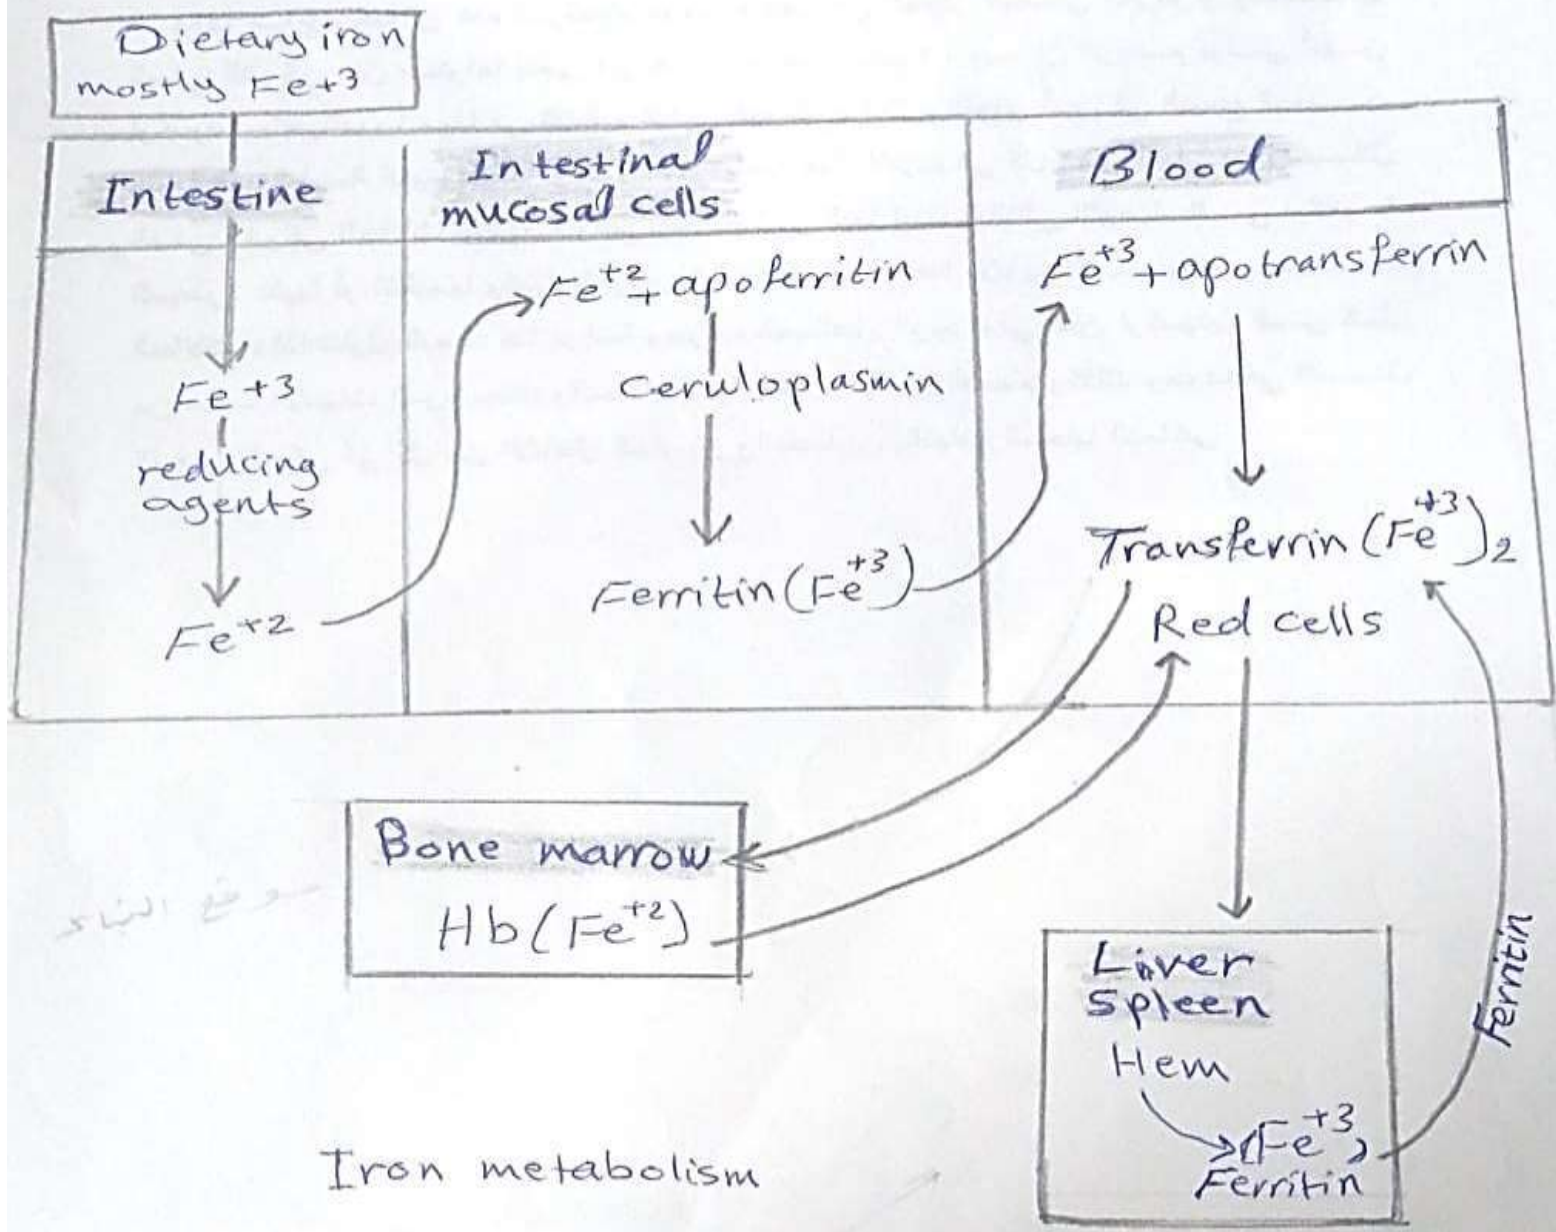 Dietary iron
mostly Fe+3
Intestine
Intestinal
mucosal cells
Blood
Fe+3
reducing
agents
Fe+2
Fe+2 + apoferritin
Ceruloplasmin
Ferritin (Fe+3)
Fe+3 + apotransferrin
Transferrin (Fe+3)2
Red cells
Bone marrow
Hb (Fe+2)
Liver
spleen
Hem
(Fe+3)
Ferritin
Ferritin
Iron metabolism